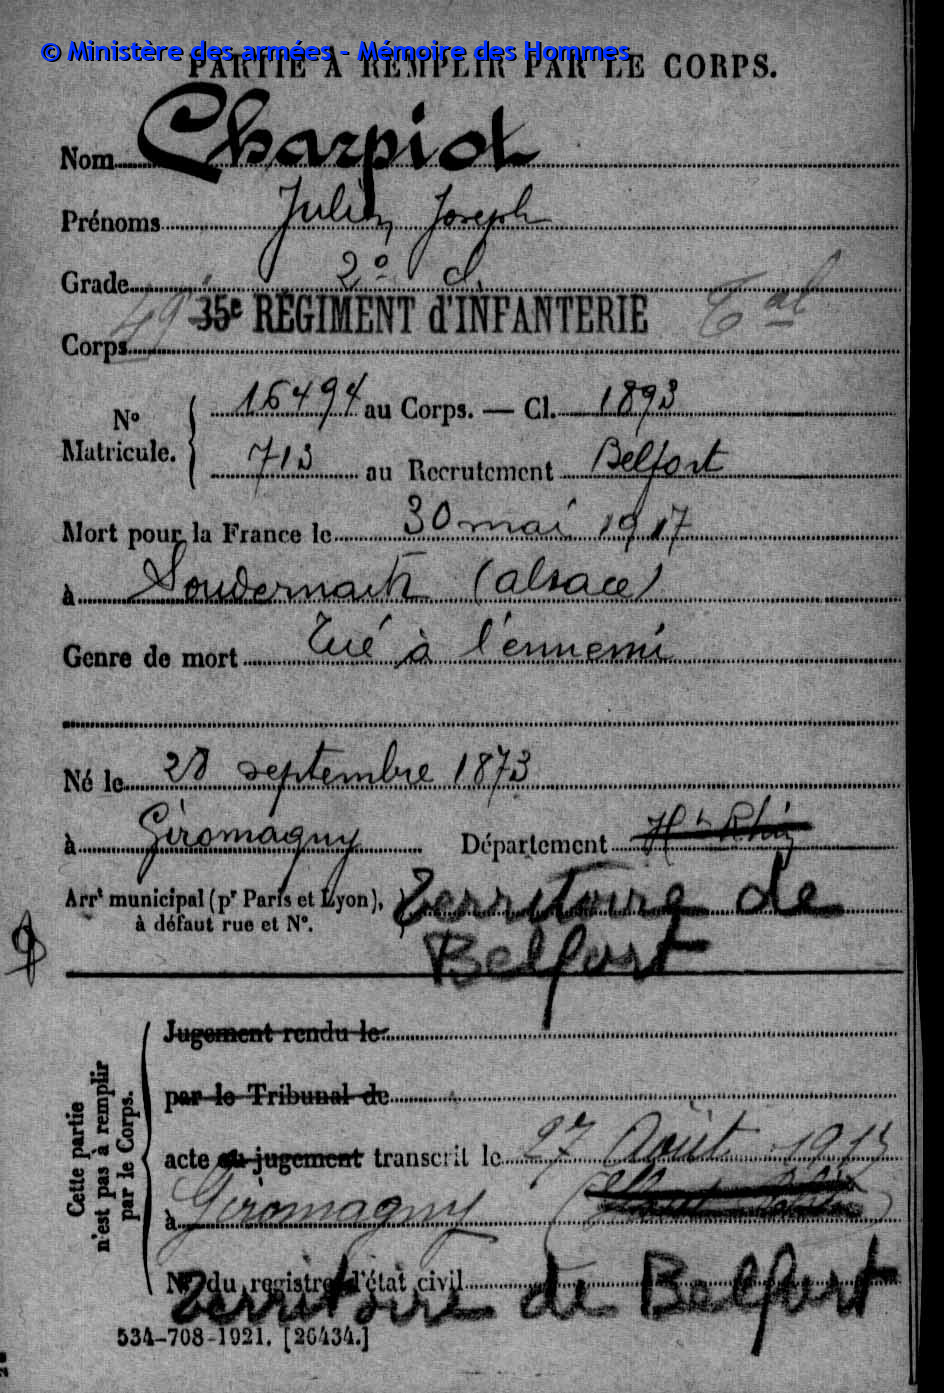 © Ministère des armées - Mémoire des Hommes
PARTIE À REMPLIR PAR LE CORPS.
Nom Charpiot
Prénoms Julien Joseph
Grade 2e cl.
35e RÉGIMENT d'INFANTERIE
Corps 49e Tal
No Matricule. { 16494 au Corps. — Cl. 1893
713 au Recrutement Belfort
Mort pour la France le 30 mai 1917
à Soudernach (alsace)
Genre de mort Tué à l'ennemi
Né le 28 septembre 1873
à Giromagny Département Ht Rhin
Arrt municipal (pr Paris et Lyon), à défaut rue et No. } Territoire de
Belfort
Cette partie n'est pas à remplir par le Corps.
Jugement rendu le
par le Tribunal de
acte ou jugement transcrit le 27 Août
à Giromagny (Haut Rhin)
No du registre d'état civil
Territoire de Belfort
534-708-1921. [26434.]